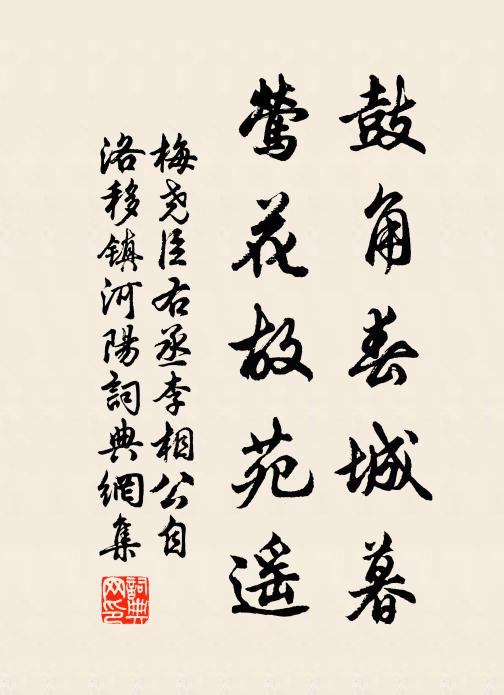 鼓角春城暮
莺花故苑遥
梅尧臣右丞李相公自
洛移鎮河陽詞典網集